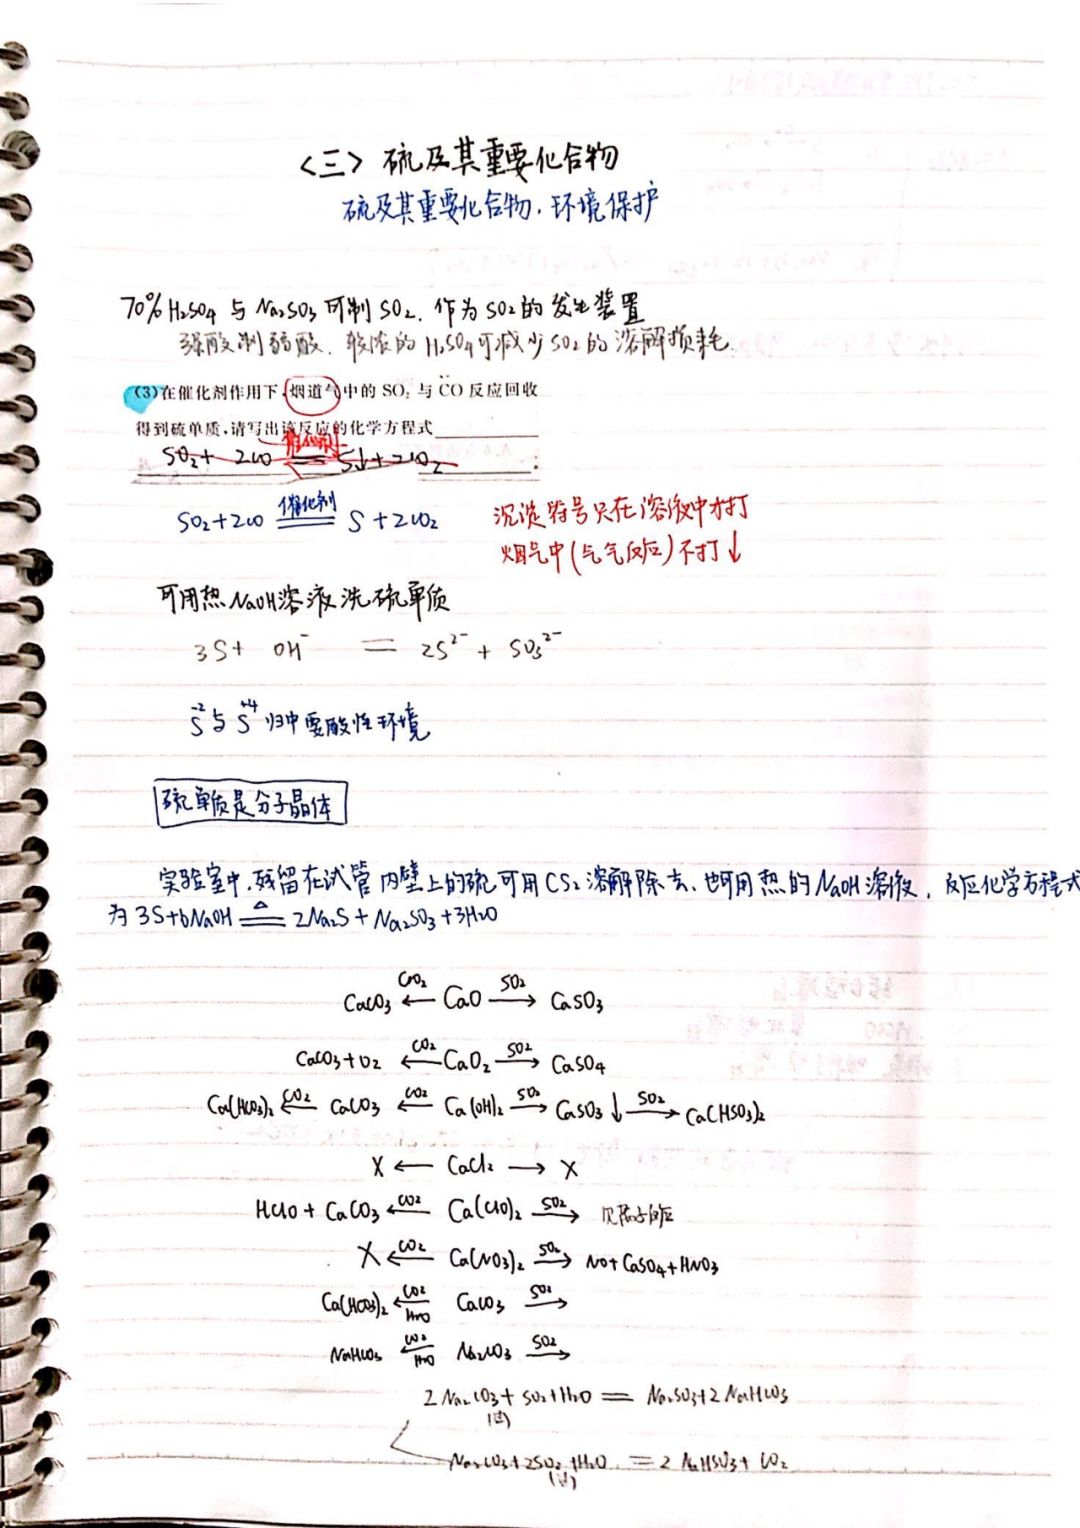 <三> 硫及其重要化合物
硫及其重要化合物、环境保护
70% H₂SO₄ 与 Na₂SO₃ 可制 SO₂. 作为 SO₂ 的发生装置
强酸制弱酸. 较浓的 H₂SO₄ 可减少 SO₂ 的溶解损耗
(3)在催化剂作用下,烟道气中的 SO₂ 与 CO 反应回收
得到硫单质,请写出该反应的化学方程式
催化剂
SO₂ + 2CO == S↓ + 2CO₂ .
催化剂
SO₂ + 2CO == S + 2CO₂
沉淀符号只在溶液中才打
烟气中(气气反应)不打↓
可用热 NaOH 溶液洗硫单质
3S + OH⁻ = 2S²⁻ + SO₃²⁻
-2 +4
S 与 S 归中要酸性环境
硫单质是分子晶体
实验室中,残留在试管内壁上的硫可用 CS₂ 溶解除去、也可用热的 NaOH 溶液, 反应化学方程式
为 3S + 6NaOH =△= 2Na₂S + Na₂SO₃ + 3H₂O
CaCO₃ ←CO₂— CaO —SO₂→ CaSO₃
CaCO₃ + O₂ ←CO₂— CaO₂ —SO₂→ CaSO₄
Ca(HCO₃)₂ ←CO₂— CaCO₃ ←CO₂— Ca(OH)₂ —SO₂→ CaSO₃↓ —SO₂→ Ca(HSO₃)₂
X ← CaCl₂ → X
HClO + CaCO₃ ←CO₂— Ca(ClO)₂ —SO₂→ 见离子反应
X ←CO₂— Ca(NO₃)₂ —SO₂→ NO + CaSO₄ + HNO₃
Ca(HCO₃)₂ ←CO₂/H₂O— CaCO₃ —SO₂→
NaHCO₃ ←CO₂/H₂O— Na₂CO₃ —SO₂→
2Na₂CO₃ + SO₂ + H₂O = Na₂SO₃ + 2NaHCO₃
(过)
Na₂CO₃ + 2SO₂ + H₂O = 2NaHSO₃ + CO₂
(过)